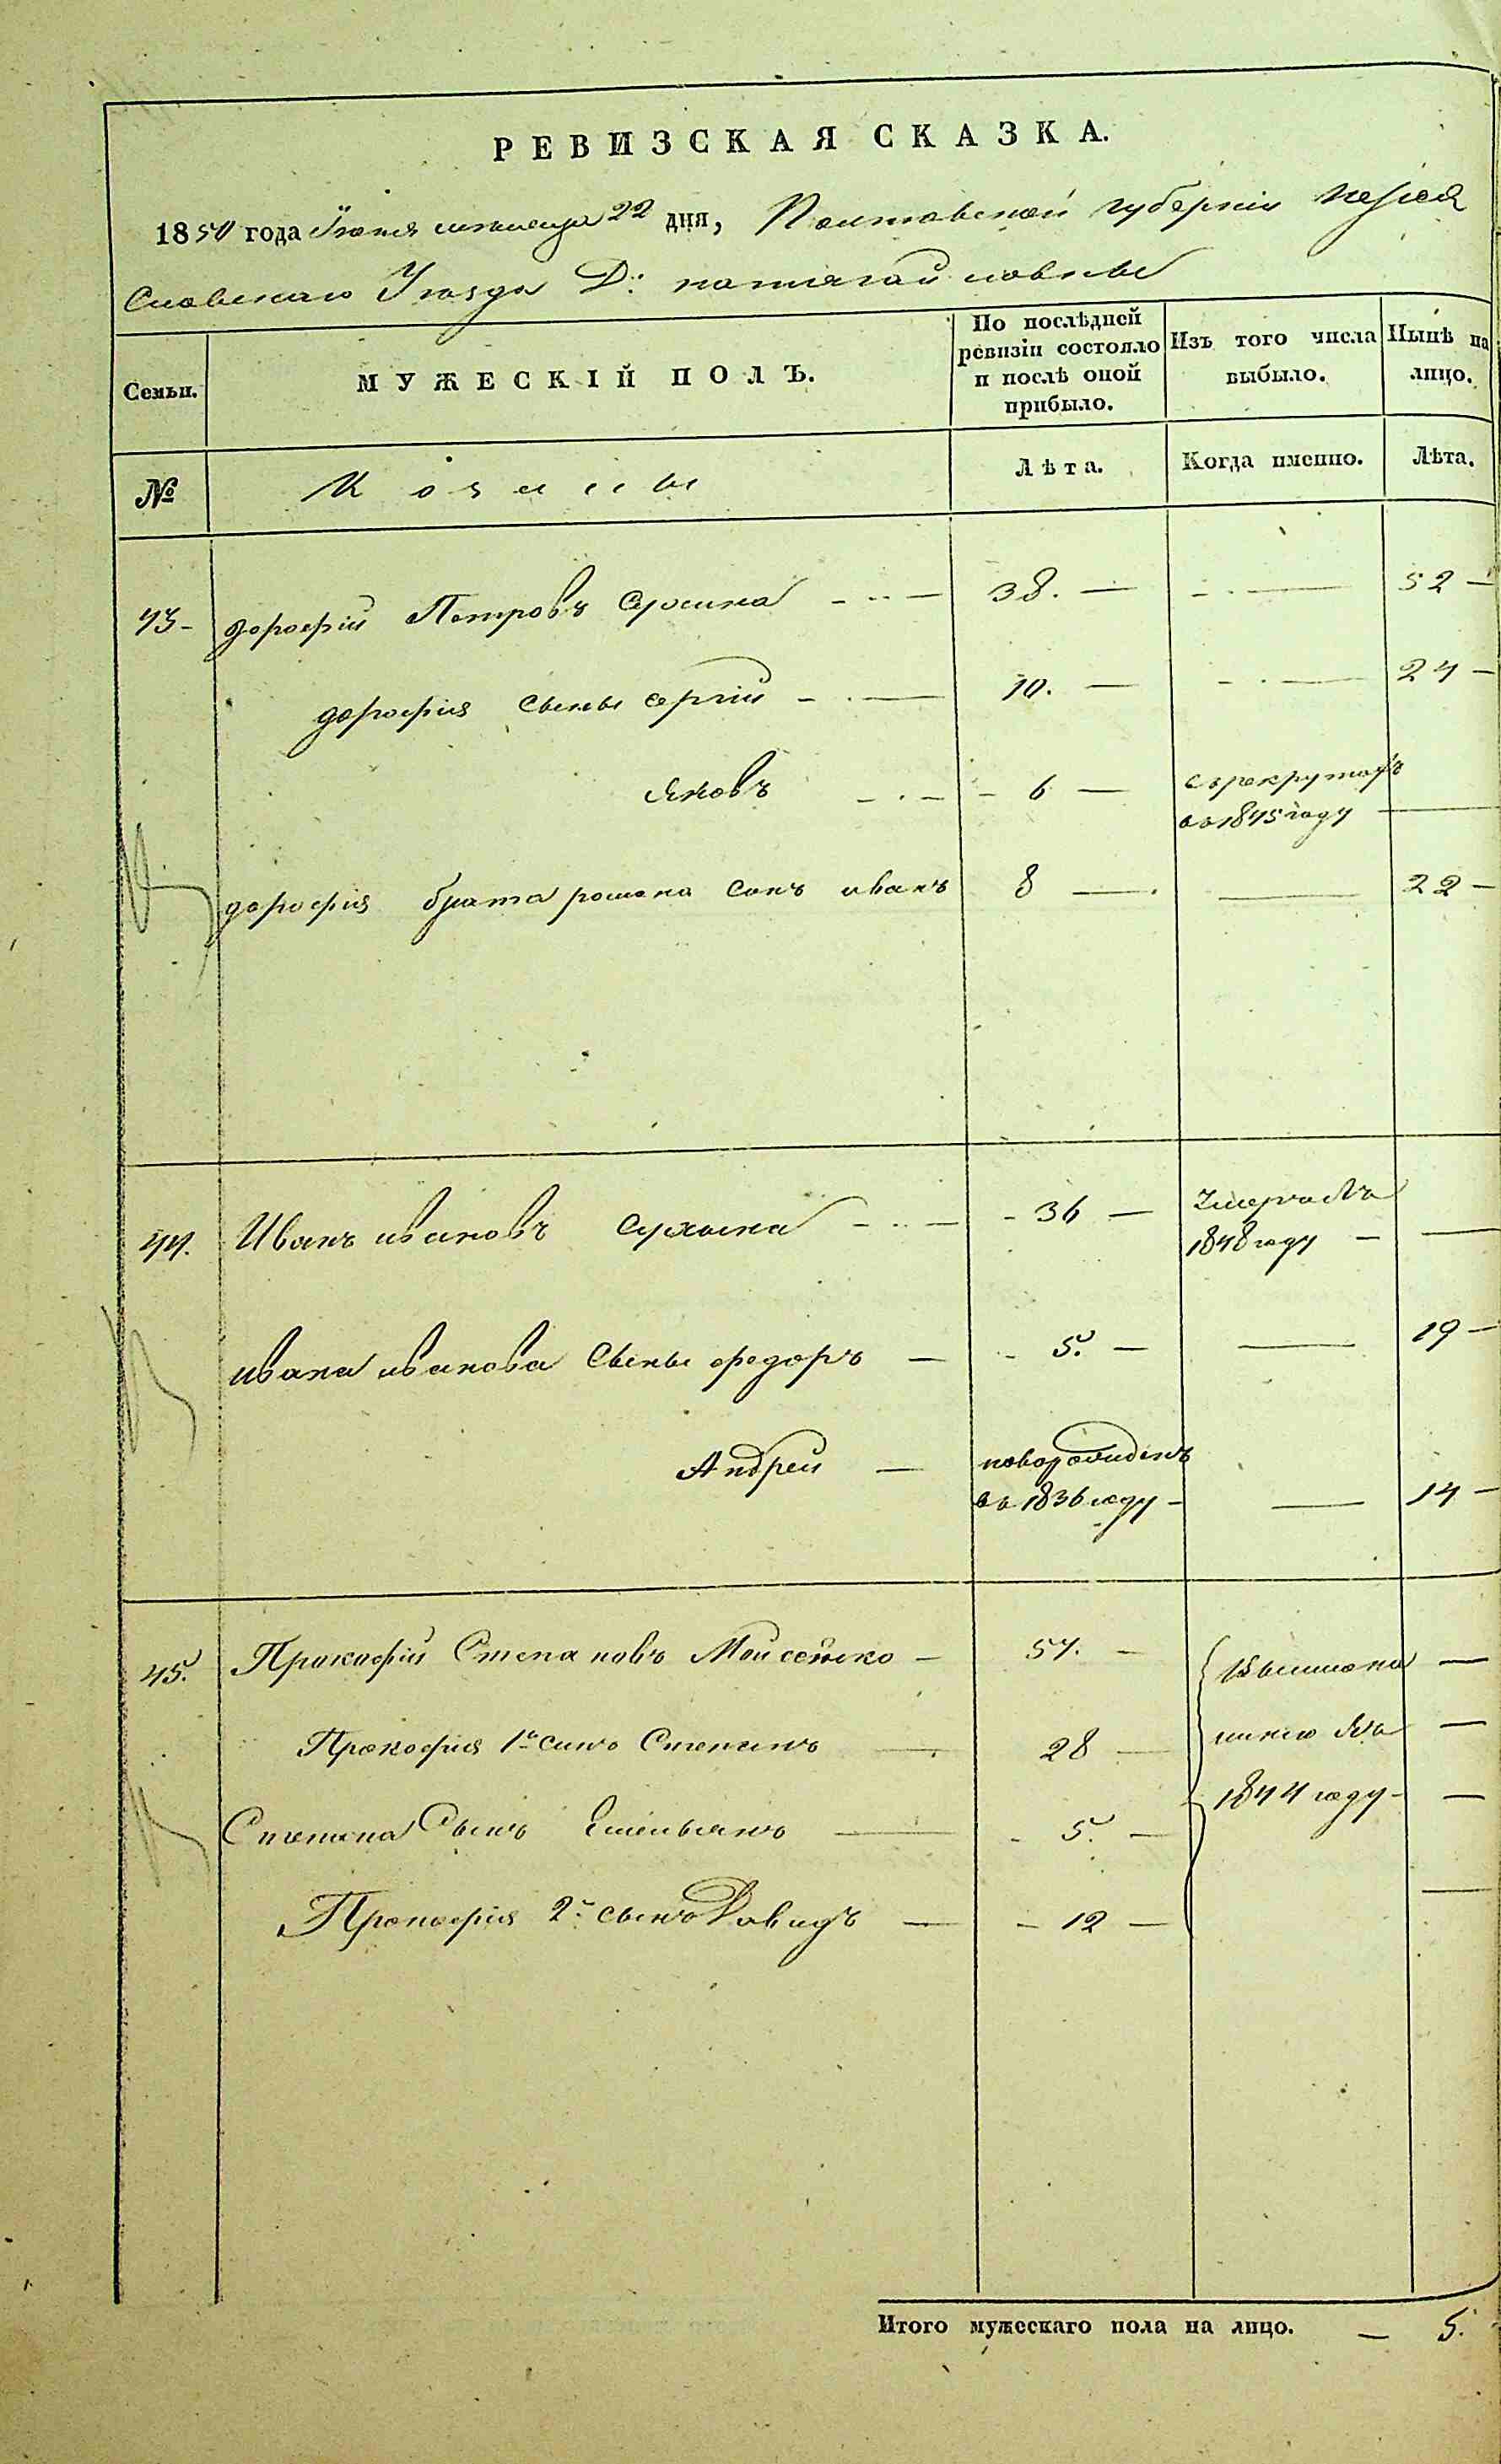 РЕВИЗСКАЯ СКАЗКА.
1850 года Июня месяца 22 дня, Полтавской губернии Переяславскаго Уезда Д:
Семьи.
МУЖЕСКІЙ ПОЛЪ.
По послѣдней ревизіи состояло и послѣ оной прибыло.
Изъ того числа выбыло.
Нынѣ на лицо.
№
Козаки
Лѣта.
Когда именно.
Лѣта.
43 - дорофій Петровъ 38. — — 52 —
дорофія сыны сергій — 10. — — 24 —
яковъ — 6 — въ 1845 году —
дорофія брата романа сынъ иванъ 8 — — 22 —
44. Иванъ ивановъ — 36 — Умеръ въ 1848 году — —
ивана иванова сыны федоръ — 5. — — 19 —
Андрей — новорожденъ въ 1836 году — — 14 —
45. Прокофій Степановъ Мойсеенко — 57. — —
Прокофія 1й сынъ Степанъ — 28 — —
Степана Сынъ Емельянъ — 5. — 1844 году — —
Прокофія 2й сынъ Давидъ — 12 — —
Итого мужескаго пола на лицо. — 5.